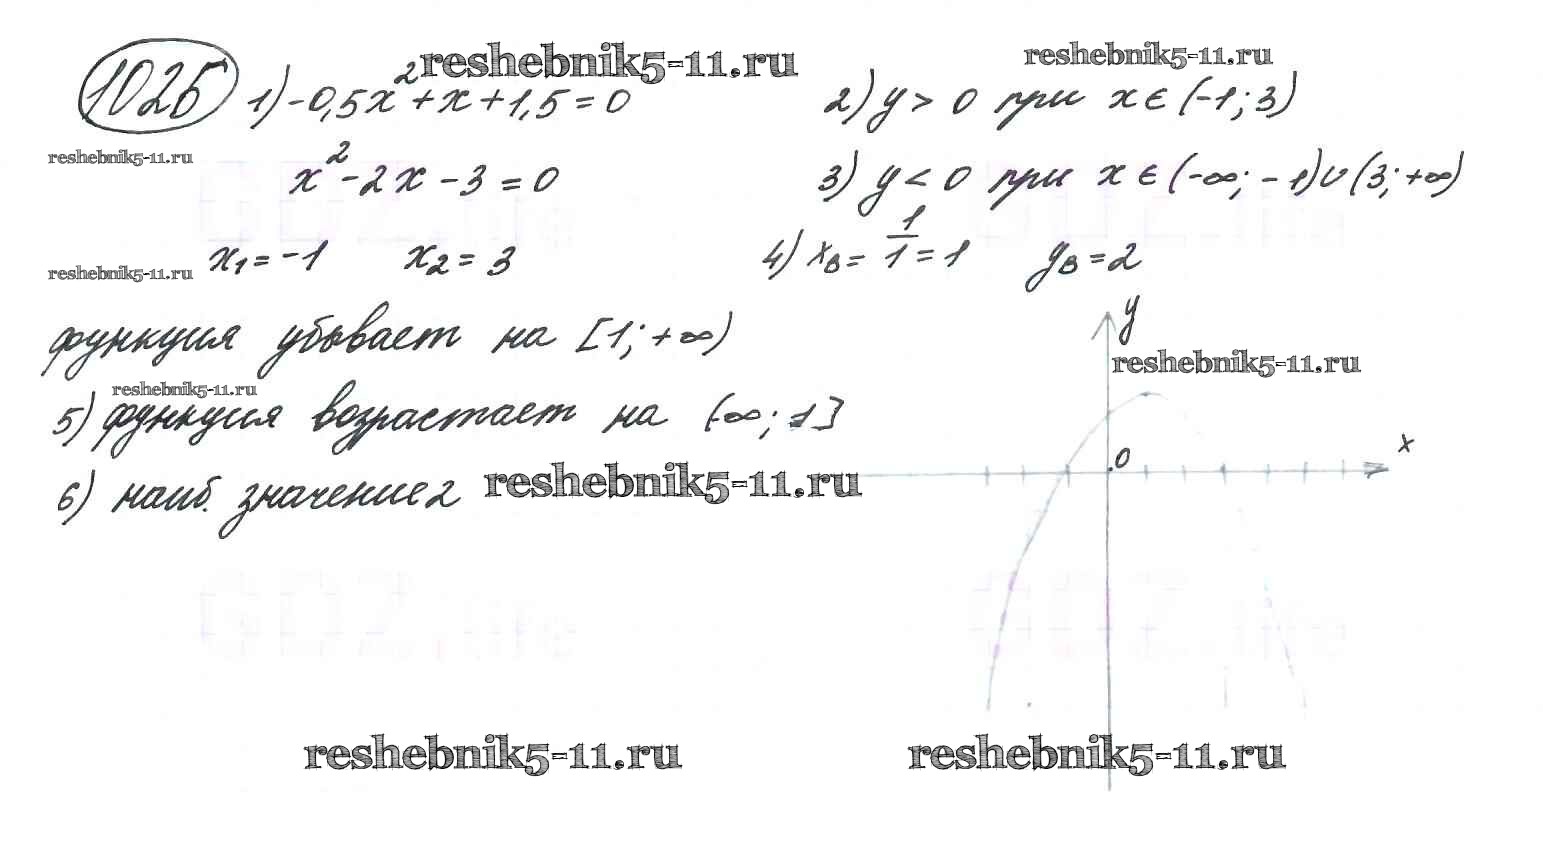 1025 1) -0,5x² + x + 1,5 = 0
x² - 2x - 3 = 0
x₁ = -1 x₂ = 3
2) y > 0 при x ∈ (-1; 3)
3) y < 0 при x ∈ (-∞; -1) ∪ (3; +∞)
4) xв = 1/1 = 1 yв = 2
функция убывает на [1; +∞)
5) функция возрастает на (-∞; 1]
6) наиб. значение 2
y
x
0
reshebnik5-11.ru
reshebnik5-11.ru
reshebnik5-11.ru
reshebnik5-11.ru
reshebnik5-11.ru
reshebnik5-11.ru
reshebnik5-11.ru
reshebnik5-11.ru
reshebnik5-11.ru
GDZ.life
GDZ.life
GDZ.life
GDZ.life